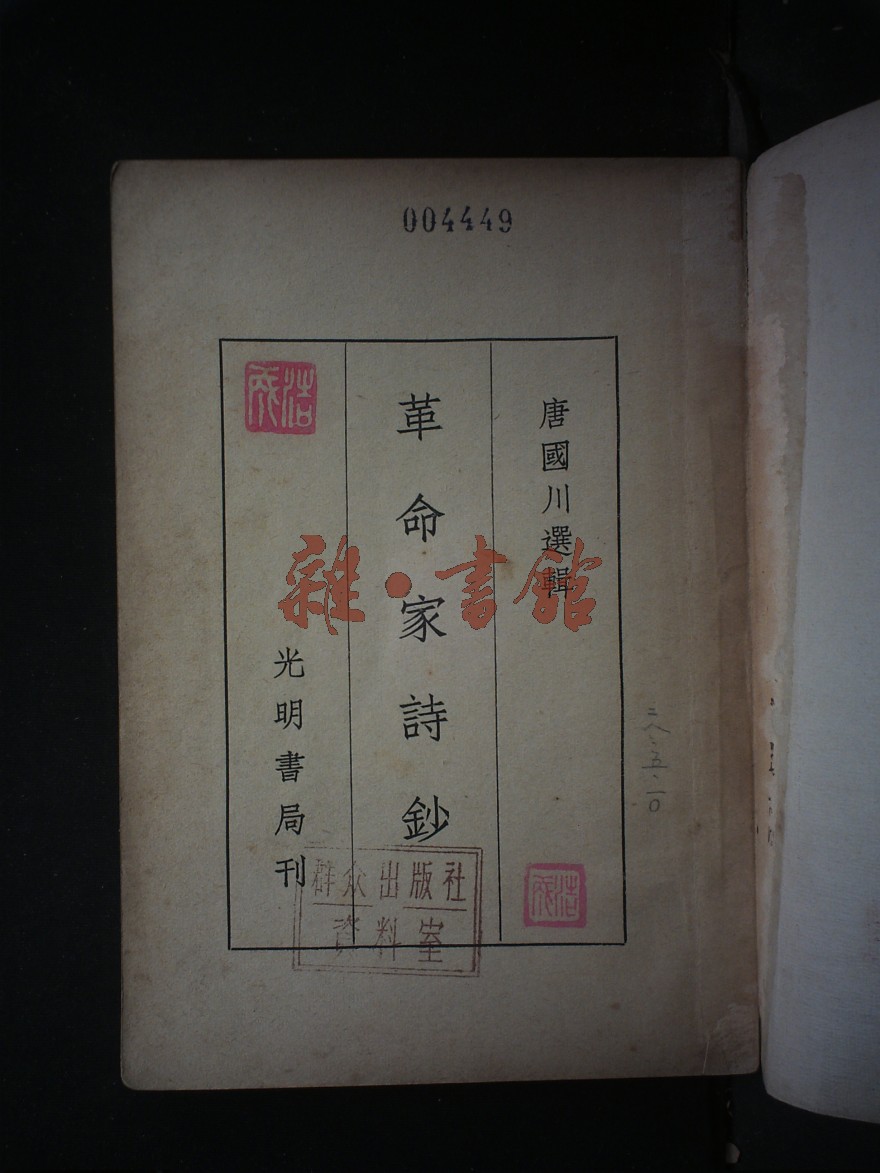 004449
唐國川選輯
革命家詩鈔
光明書局刊
浩成
浩成
群众出版社
資料室
三八·五·一〇
雜·書館